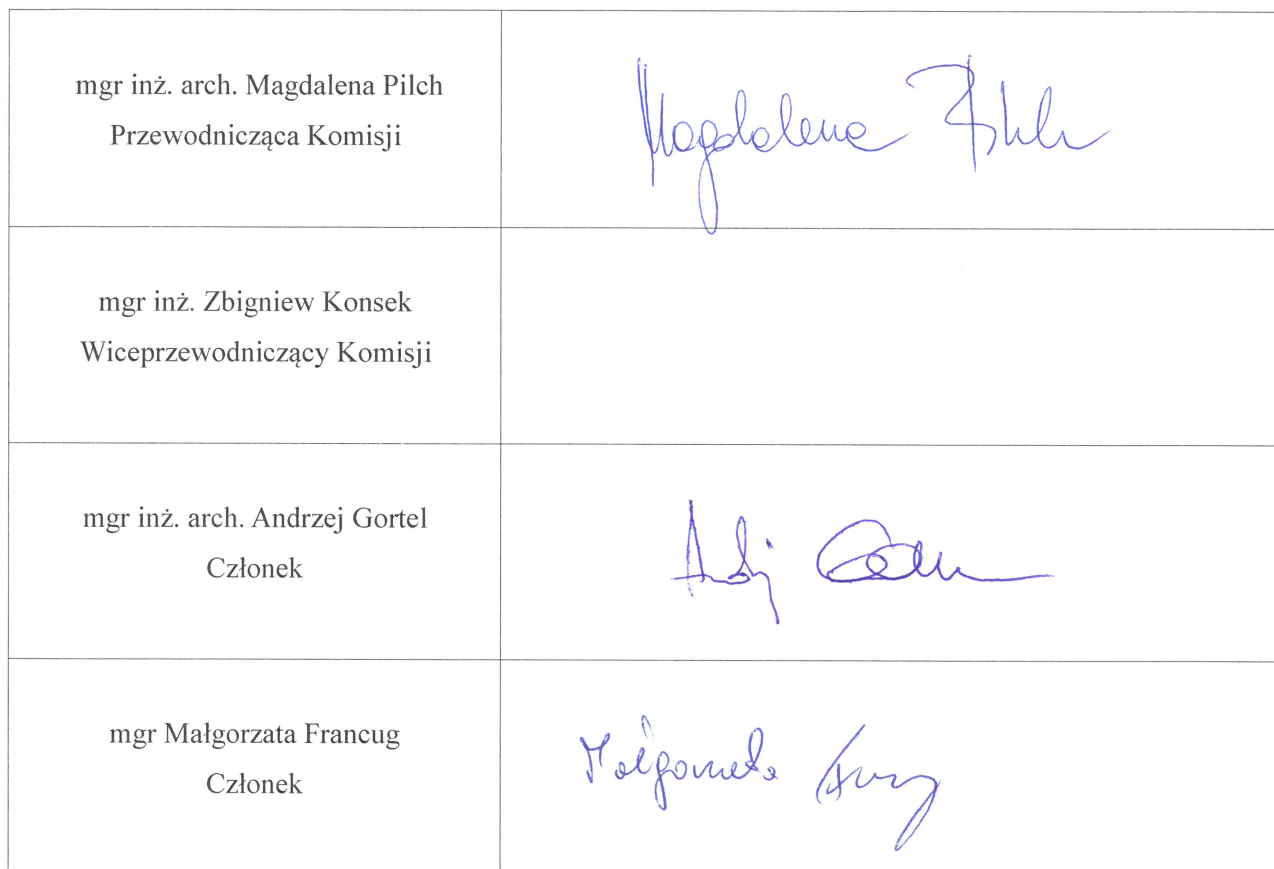 mgr inż. arch. Magdalena Pilch
Przewodnicząca Komisji
Magdalena Pilch
mgr inż. Zbigniew Konsek
Wiceprzewodniczący Komisji
mgr inż. arch. Andrzej Gortel
Członek
mgr Małgorzata Francug
Członek
Małgorzata